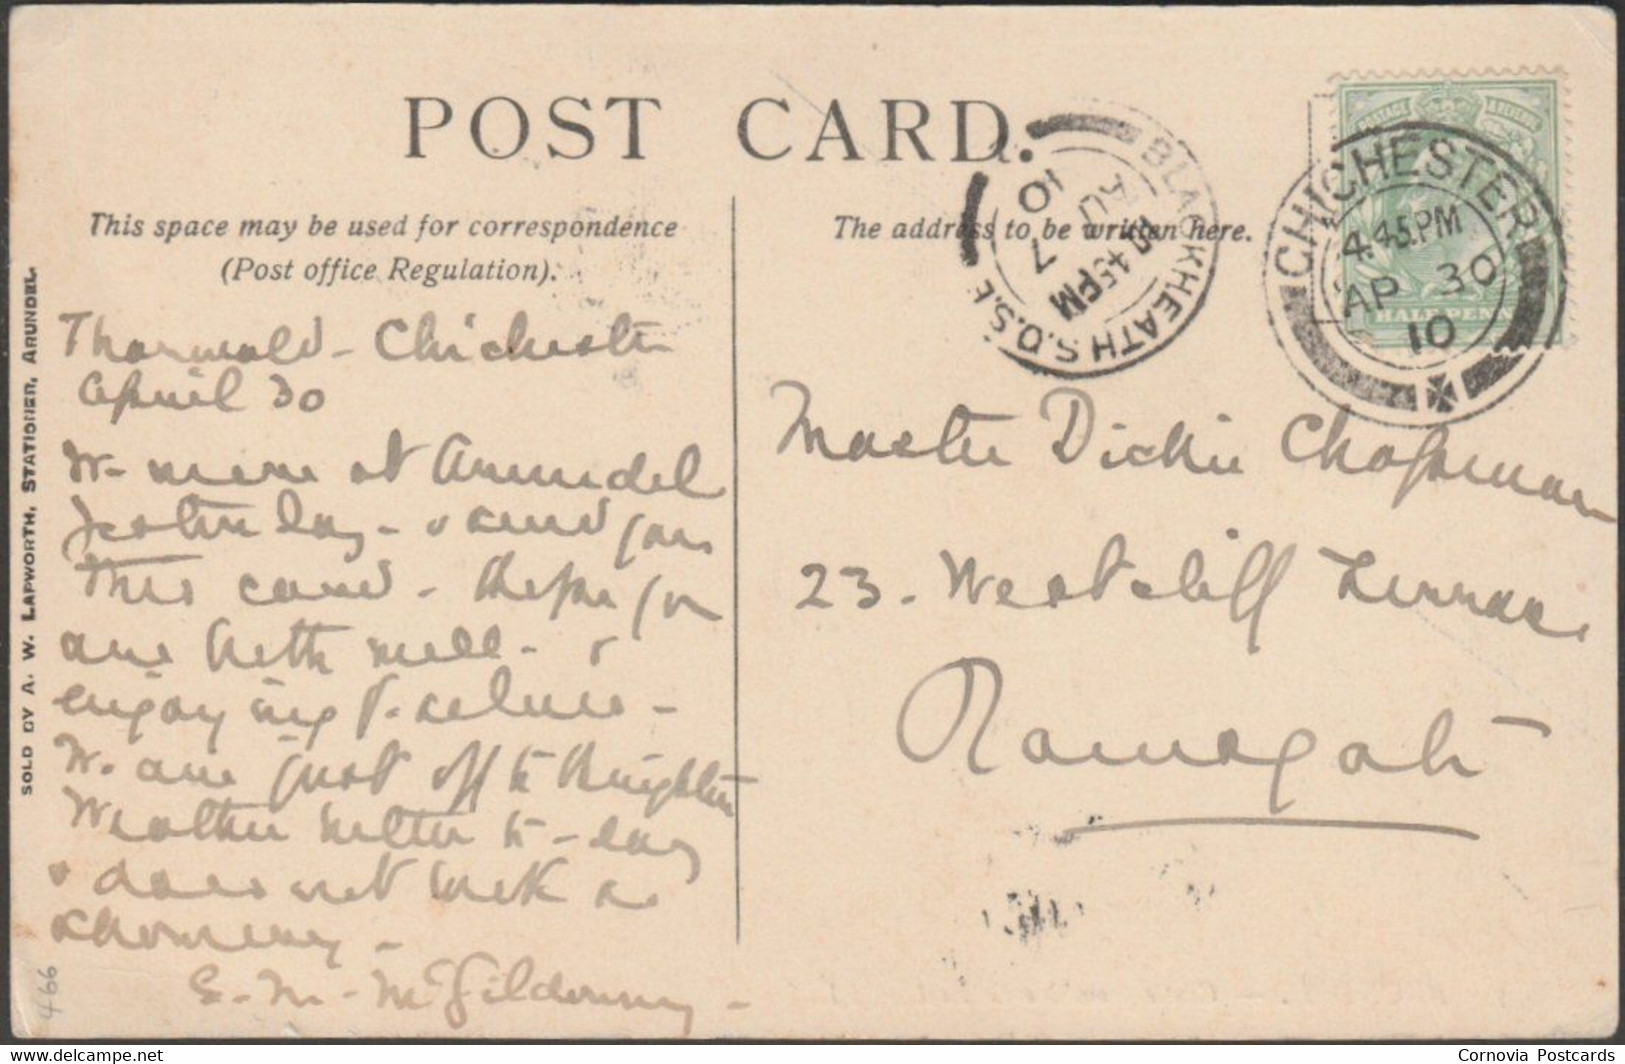 POST CARD.
This space may be used for correspondence
(Post office Regulation).
The address to be written here.
SOLD BY A. W. LAPWORTH, STATIONER, ARUNDEL.
BLACKHEATH S.O. S.E
7 45PM
AU
10
CHICHESTER
4.45PM
AP 30
10
POSTAGE
HALFPENNY
Chichester
April 30
We were at Arundel
Yesterday - & send you
this card - Hope you
are both well - &
enjoying
We are just off to Brighton
Weather better to-day
& does not look so
showery -
E. M.
Master Dickie Chapman
23. Westcliff Terrace
Ramsgate
466
Cornovia Postcards
www.delcampe.net